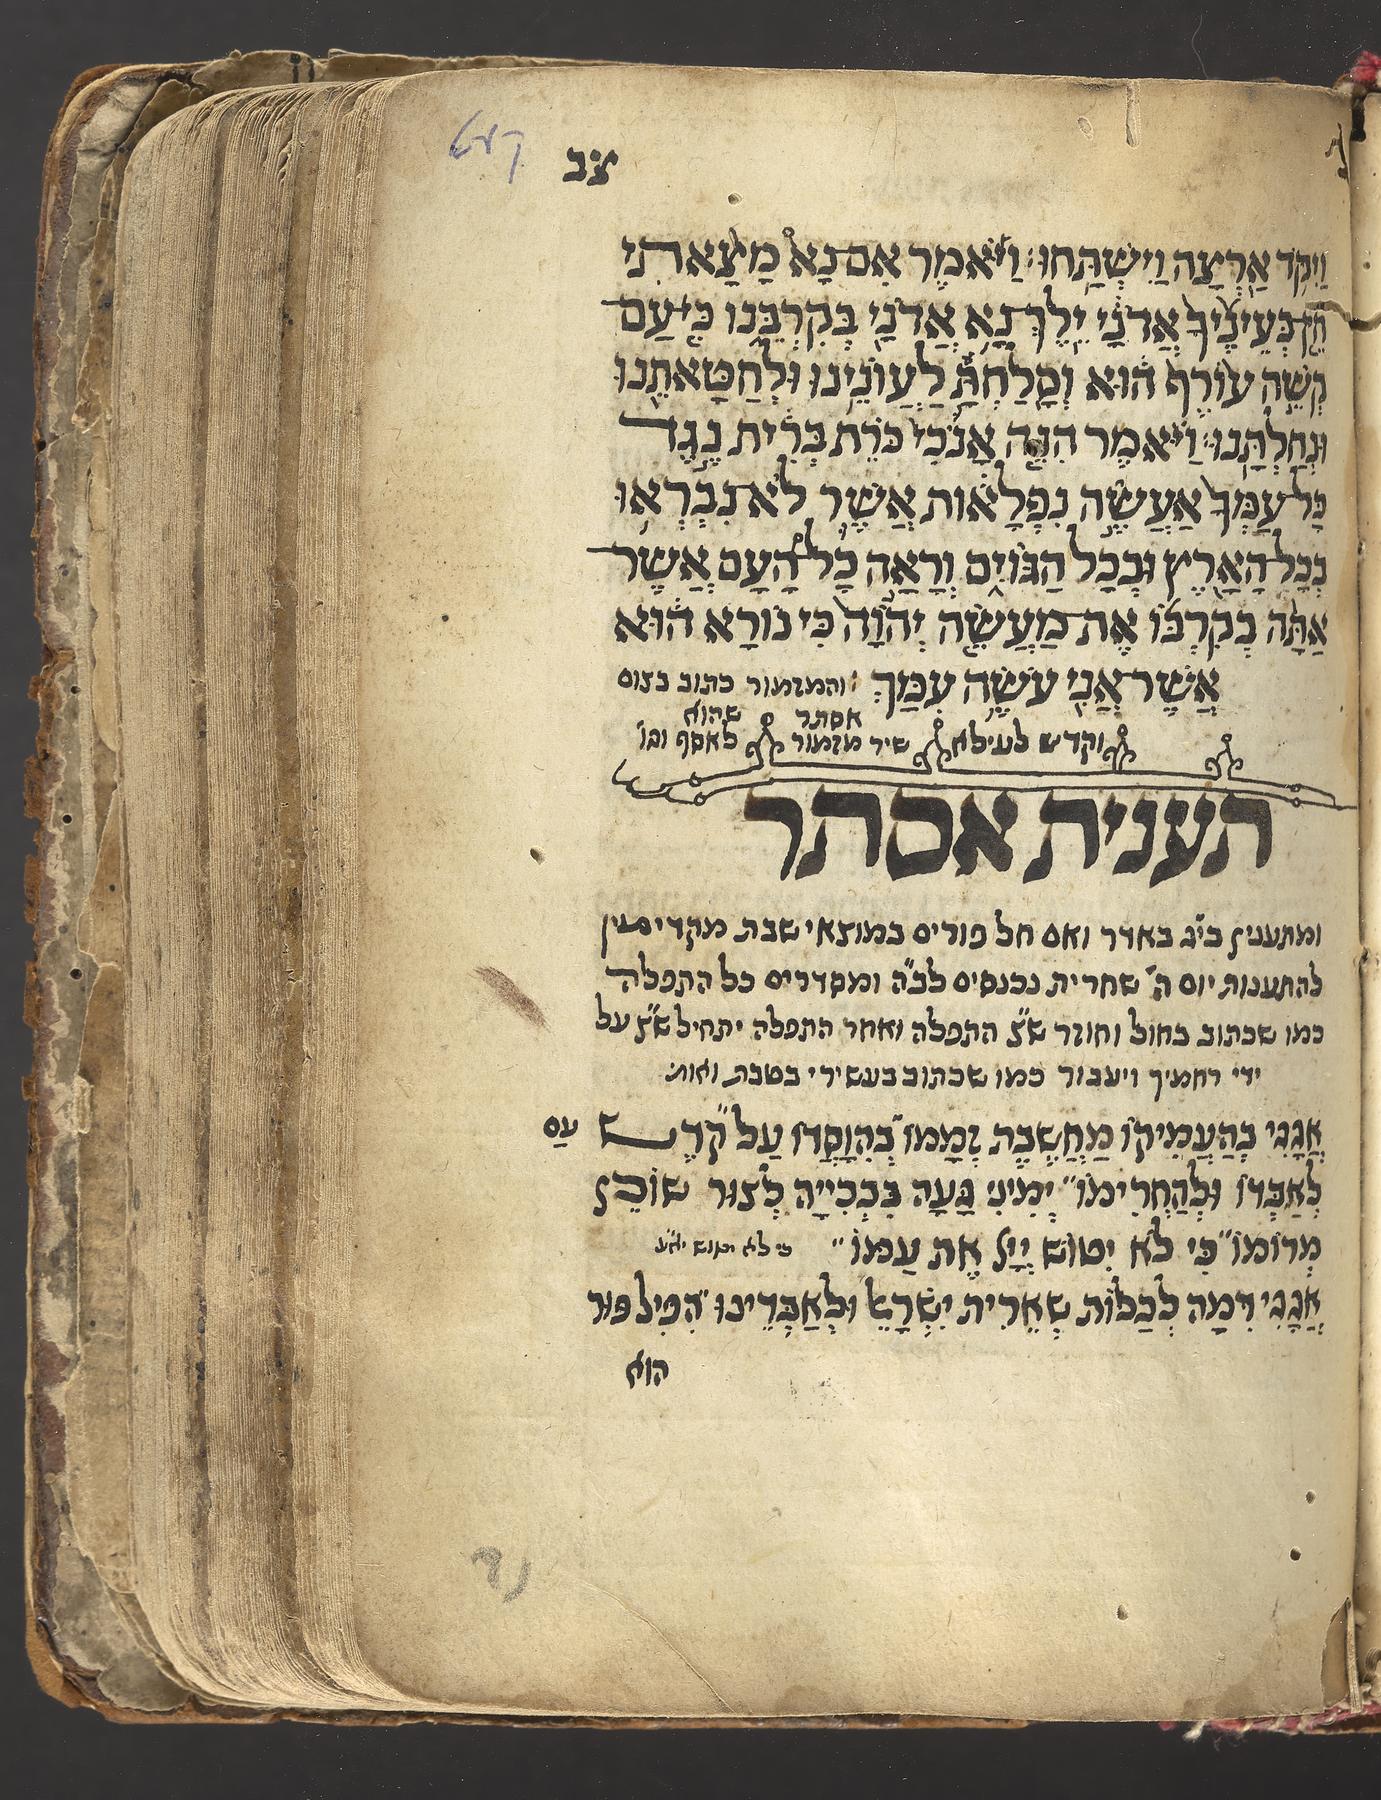 צב
וַיִּקֹּד אַרְצָה וַיִּשְׁתָּחוּ׃ וַיֹּאמֶר אִם נָא מָצָאתִי
חֵן בְּעֵינֶיךָ אֲדֹנָי יֵלֶךְ נָא אֲדֹנָי בְּקִרְבֵּנוּ כִּי עַם
קְשֵׁה עוֹרֶף הוּא וְסָלַחְתָּ לַעֲוֹנֵינוּ וּלְחַטָּאתֵנוּ
וּנְחַלְתָּנוּ׃ וַיֹּאמֶר הִנֵּה אָנֹכִי כֹּרֵת בְּרִית נֶגֶד
כָּל עַמְּךָ אֶעֱשֶׂה נִפְלָאוֹת אֲשֶׁר לֹא נִבְרְאוּ
בְכָל הָאָרֶץ וּבְכָל הַגּוֹיִם וְרָאָה כָל הָעָם אֲשֶׁר
אַתָּה בְקִרְבּוֹ אֶת מַעֲשֵׂה יְהֹוָה כִּי נוֹרָא הוּא
אֲשֶׁר אֲנִי עֹשֶׂה עִמָּךְ׃ והמזמור כתוב בצום
אסתר שהוא
וקדש לעילא שיר מזמור לאסף וכו'
תענית אסתר
ומתענין בי"ג באדר ואם חל פורים במוצאי שבת מקדימין
להתענות יום ה' שחרית נכנסים לב"ה ומסדרים כל התפלה
כמו שכתוב בחול וחוזר ש"צ התפלה ואחר התפלה יתחיל ש"צ על
ידי רחמיך ויעבור כמו שכתוב בעשירי בטבת ואות׃
אֲגָגִי בְּהַעֲמִיקוֹ מַחֲשֶׁבֶת זְמָמוֹ בְּהִוָּסְדוֹ עַל קֹדֶשׁ עַם
לְאַבְּדוֹ וּלְהַחֲרִימוֹ יְמִינִי גָּעָה בִּבְכִיָּיה לְצוּר שׁוֹכֵן
מְרוֹמוֹ כִּי לֹא יִטּוֹשׁ יְיָ אֶת עַמּוֹ כי לא יטוש
אֲגָגִי דִּמָּה לְכַלּוֹת שְׁאֵרִית יִשְׂרָאֵל וּלְאַבְּדֵינוּ הִפִּיל פּוּר
הוא